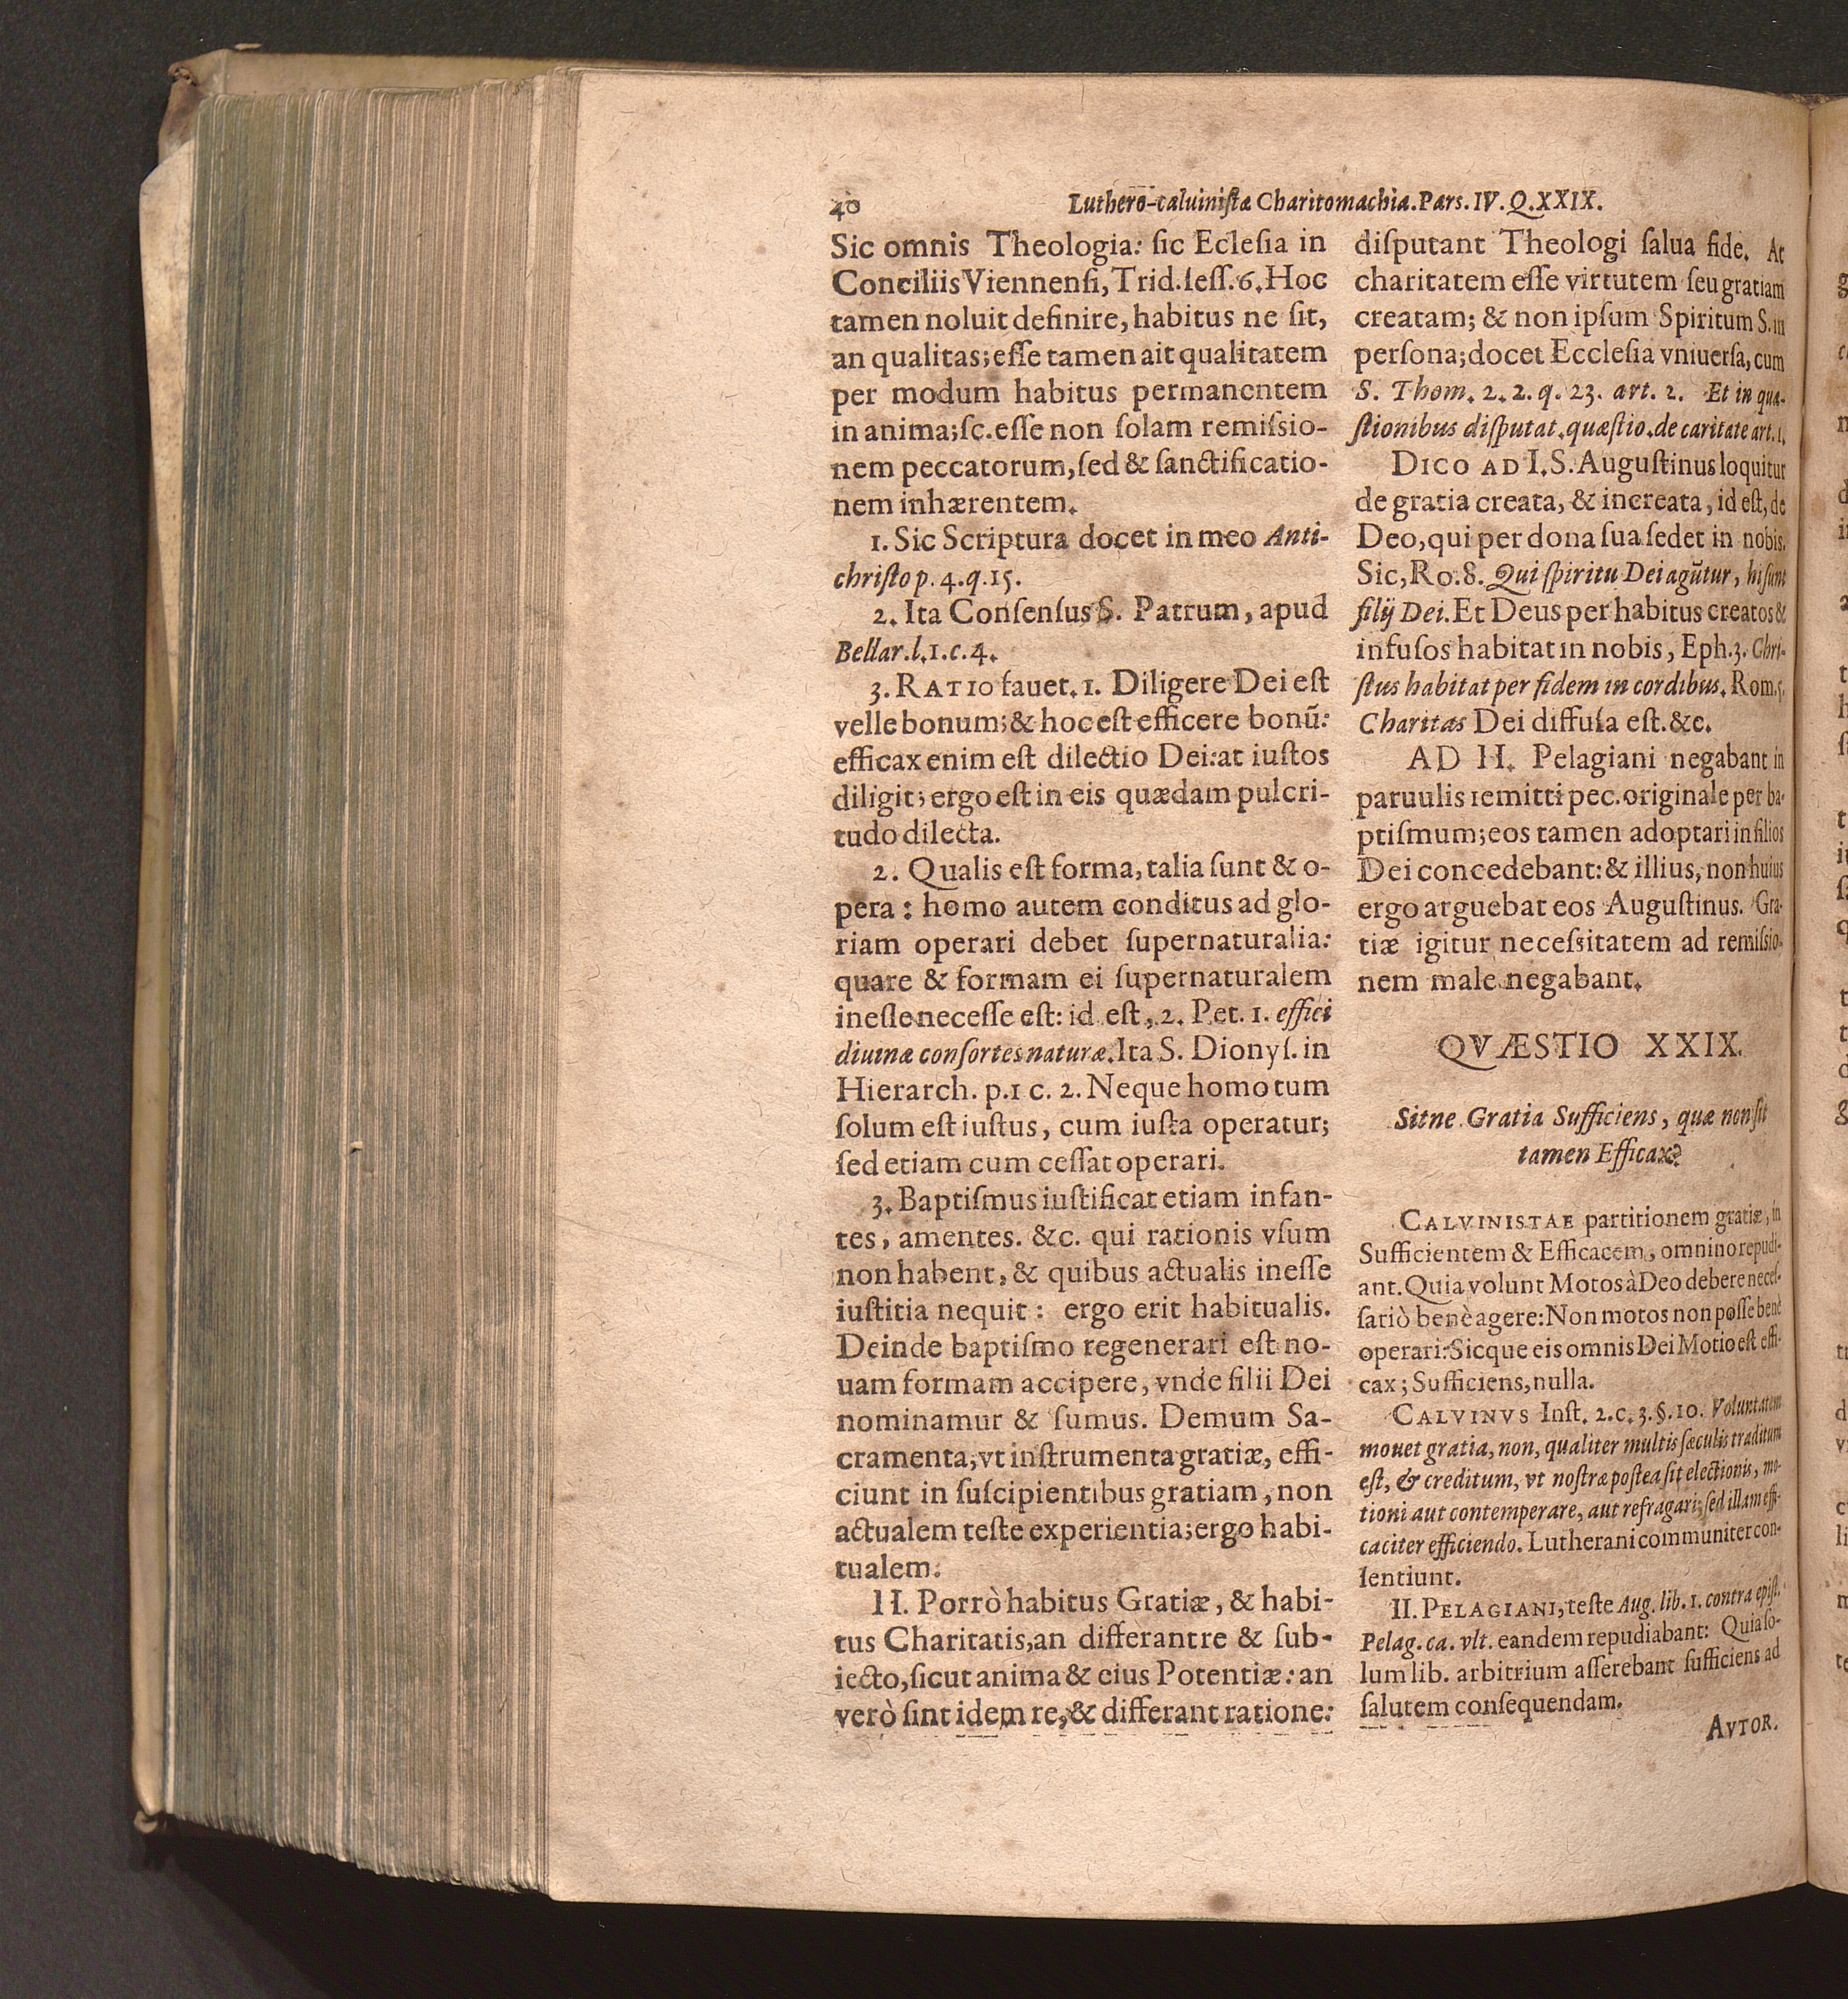 40
Luthero-caluinistæ Charitomachia. Pars. IV. Q. XXIX.
Sic omnis Theologia: sic Eclesia in
Conciliis Viennensi, Trid. sess. 6. Hoc
tamen noluit definire, habitus ne sit,
an qualitas; esse tamen ait qualitatem
per modum habitus permanentem
in anima; sc. esse non solam remissio-
nem peccatorum, sed & sanctificatio-
nem inhærentem.
1. Sic Scriptura docet in meo Anti-
christo p. 4. q. 15.
2. Ita Consensus S. Patrum, apud
Bellar. l. 1. c. 4.
3. RATIO fauet. 1. Diligere Dei est
velle bonum; & hoc est efficere bonũ:
efficax enim est dilectio Dei: at iustos
diligit; ergo est in eis quædam pulcri-
tudo dilecta.
2. Qualis est forma, talia sunt & o-
pera: homo autem conditus ad glo-
riam operari debet supernaturalia:
quare & formam ei supernaturalem
inesse necesse est: id est, 2. Pet. 1. effici
diuinæ consortes naturæ. Ita S. Dionys. in
Hierarch. p. 1 c. 2. Neque homo tum
solum est iustus, cum iusta operatur;
sed etiam cum cessat operari.
3. Baptismus iustificat etiam infan-
tes, amentes. &c. qui rationis vsum
non habent, & quibus actualis inesse
iustitia nequit: ergo erit habitualis.
Deinde baptismo regenerari est no-
uam formam accipere, vnde filii Dei
nominamur & sumus. Demum Sa-
cramenta, vt instrumenta gratiæ, effi-
ciunt in suscipientibus gratiam, non
actualem teste experientia; ergo habi-
tualem.
II. Porrò habitus Gratiæ, & habi-
tus Charitatis, an differant re & sub-
iecto, sicut anima & eius Potentiæ: an
verò sint idem re, & differant ratione:
disputant Theologi salua fide. At
charitatem esse virtutem seu gratiam
creatam; & non ipsum Spiritum S. in
persona; docet Ecclesia vniuersa, cum
S. Thom. 2. 2. q. 23. art. 2. Et in quæ-
stionibus disputat. quæstio. de caritate art. 1.
DICO AD I. S. Augustinus loquitur
de gratia creata, & increata, id est, de
Deo, qui per dona sua sedet in nobis.
Sic, Ro. 8. Qui spiritu Dei agũtur, hi sunt
filij Dei. Et Deus per habitus creatos &
infusos habitat in nobis, Eph. 3. Chri-
stus habitat per fidem in cordibus. Rom. 5.
Charitas Dei diffusa est. &c.
AD II. Pelagiani negabant in
paruulis remitti pec. originale per ba-
ptismum; eos tamen adoptari in filios
Dei concedebant: & illius, non huius
ergo arguebat eos Augustinus. Gra-
tiæ igitur necessitatem ad remissio-
nem male negabant.
QVÆSTIO XXIX.
Sitne Gratia Sufficiens, quæ non sit
tamen Efficax?
CALVINISTAE partitionem gratiæ, in
Sufficientem & Efficacem, omnino repudi-
ant. Quia volunt Motos à Deo debere neces-
sariò benè agere: Non motos non posse benè
operari: Sicque eis omnis Dei Motio est effi-
cax; Sufficiens, nulla.
CALVINVS Inst. 2. c. 3. §. 10. Voluntatem
mouet gratia, non, qualiter multis sæculis traditum
est, & creditum, vt nostræ postea sit electionis, mo-
tioni aut contemperare, aut refragari; sed illam effi-
caciter efficiendo. Lutherani communiter con-
sentiunt.
II. PELAGIANI, teste Aug. lib. 1. contra epist.
Pelag. ca. vlt. eandem repudiabant: Quia so-
lum lib. arbitrium asserebant sufficiens ad
salutem consequendam.
AVTOR.